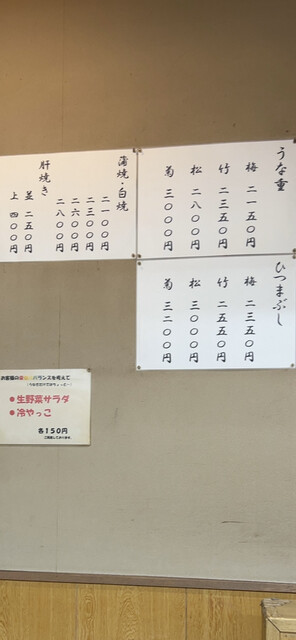 うな重
梅 二一五〇円
竹 二三五〇円
松 二八〇〇円
菊 三〇〇〇円
ひつまぶし
梅 二三五〇円
竹 二五五〇円
松 三〇〇〇円
菊 三二〇〇円
蒲焼・白焼
二一〇〇円
二三〇〇円
二六〇〇円
二八〇〇円
肝焼き
並 二五〇円
上 四〇〇円
お客様の栄養バランスを考えて
●生野菜サラダ
●冷やっこ
各150円
ご用意しております。